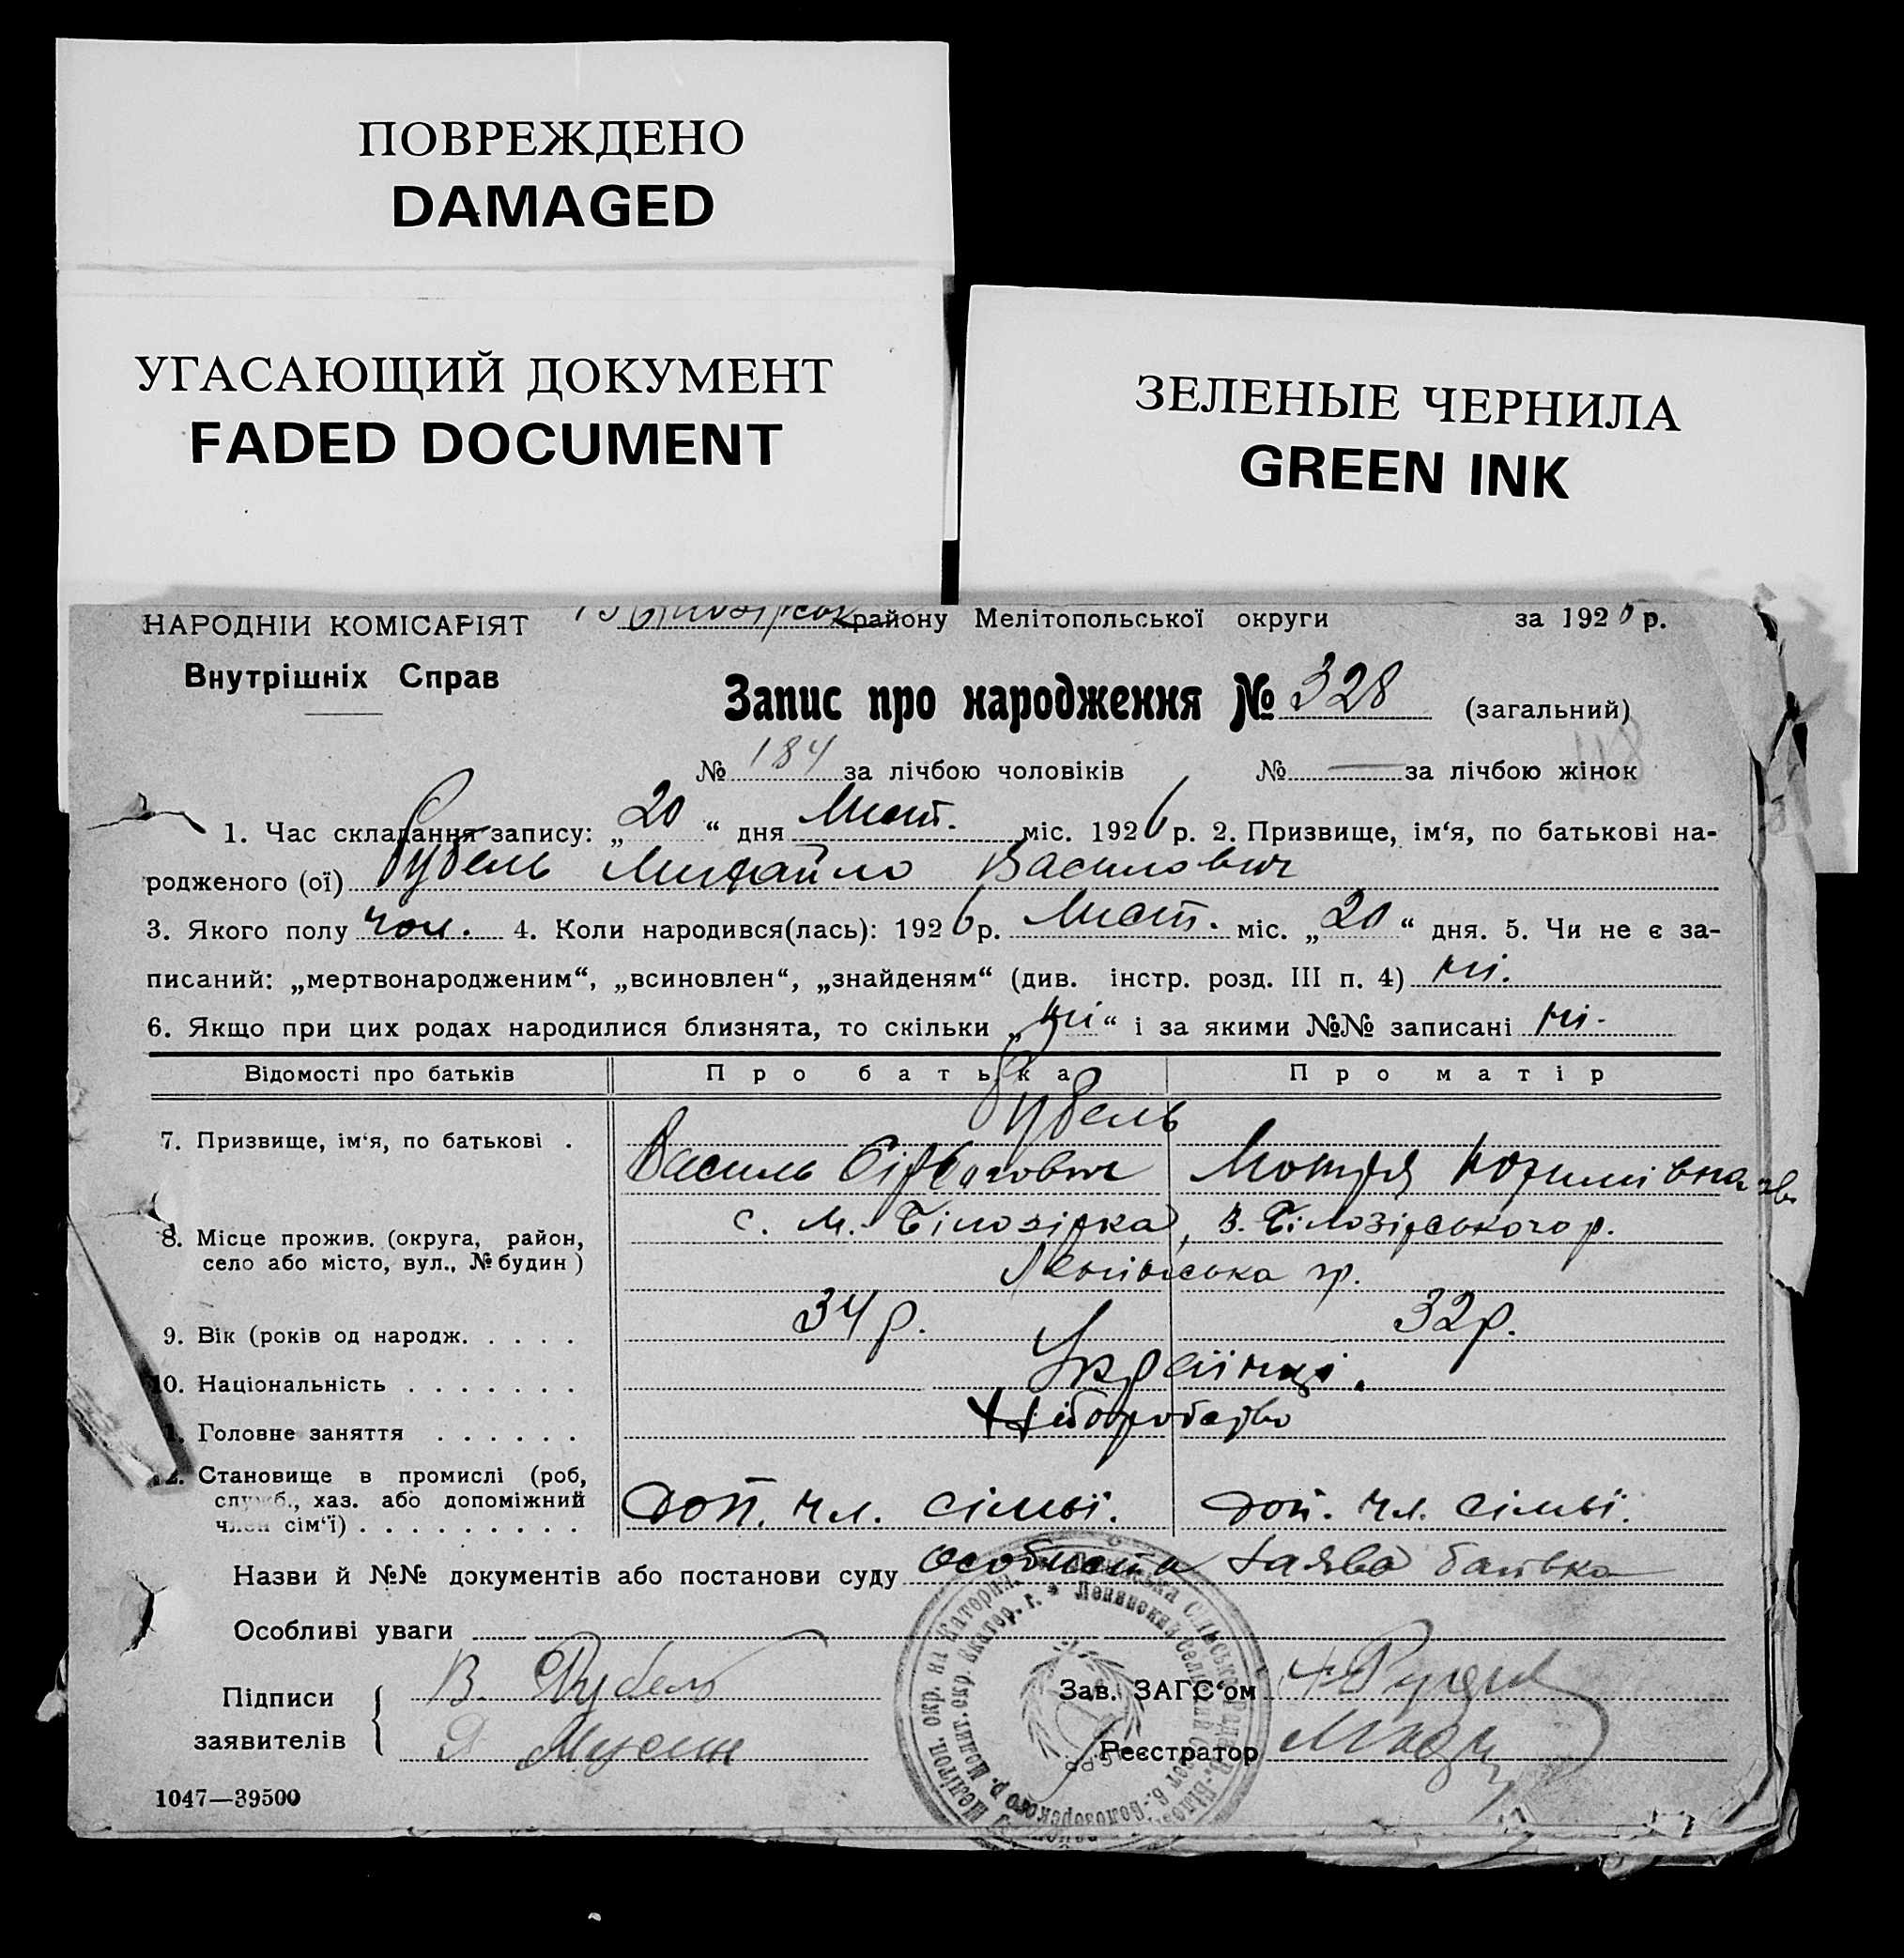 ПОВРЕЖДЕНО
DAMAGED
УГАСАЮЩИЙ ДОКУМЕНТ
FADED DOCUMENT
ЗЕЛЕНЫЕ ЧЕРНИЛА
GREEN INK
НАРОДНІИ КОМІСАРІЯТ
Внутрішніх Справ
району Мелітопольської округи за 1926 р.
Запис про народження № 328 (загальний)
№ 184 за лічбою чоловіків № — за лічбою жінок
1. Час складання запису: „20“ дня Лист. міс. 1926 р. 2. Призвище, ім‘я, по батькові на-
родженого (ої) Рубель Михайло Василович
3. Якого полу чол. 4. Коли народився(лась): 1926 р. Лист. міс. „20“ дня. 5. Чи не є за-
писаний: „мертвонародженим“, „всиновлен“, „знайденям“ (див. інстр. розд. III п. 4) ні.
6. Якщо при цих родах народилися близнята, то скільки „ні“ і за якими №№ записані ні.
Відомості про батьків Про батька Про матір
Рубель
7. Призвище, ім‘я, по батькові .
Василь Мотря
8. Місце прожив. (округа, район, село або місто, вул., № будин)
с. М. Білозірка, В. Білозірського р.
гр.
9. Вік (років од народж. . . . . 34 р. 32 р.
10. Національність . . . . . . . Українці.
Головне заняття . . . . . . Хліборобство
Становище в промислі (роб,
служб., хаз. або допоміжний
член сім‘ї) . . . . . . . . . Доп. чл. сімьї. Доп. чл. сімьї.
Назви й №№ документів або постанови суду особиста заява батька
Особливі уваги
Підписи заявителів
В. Рубель
Зав. ЗАГС‘ом
Реєстратор
1047—39500